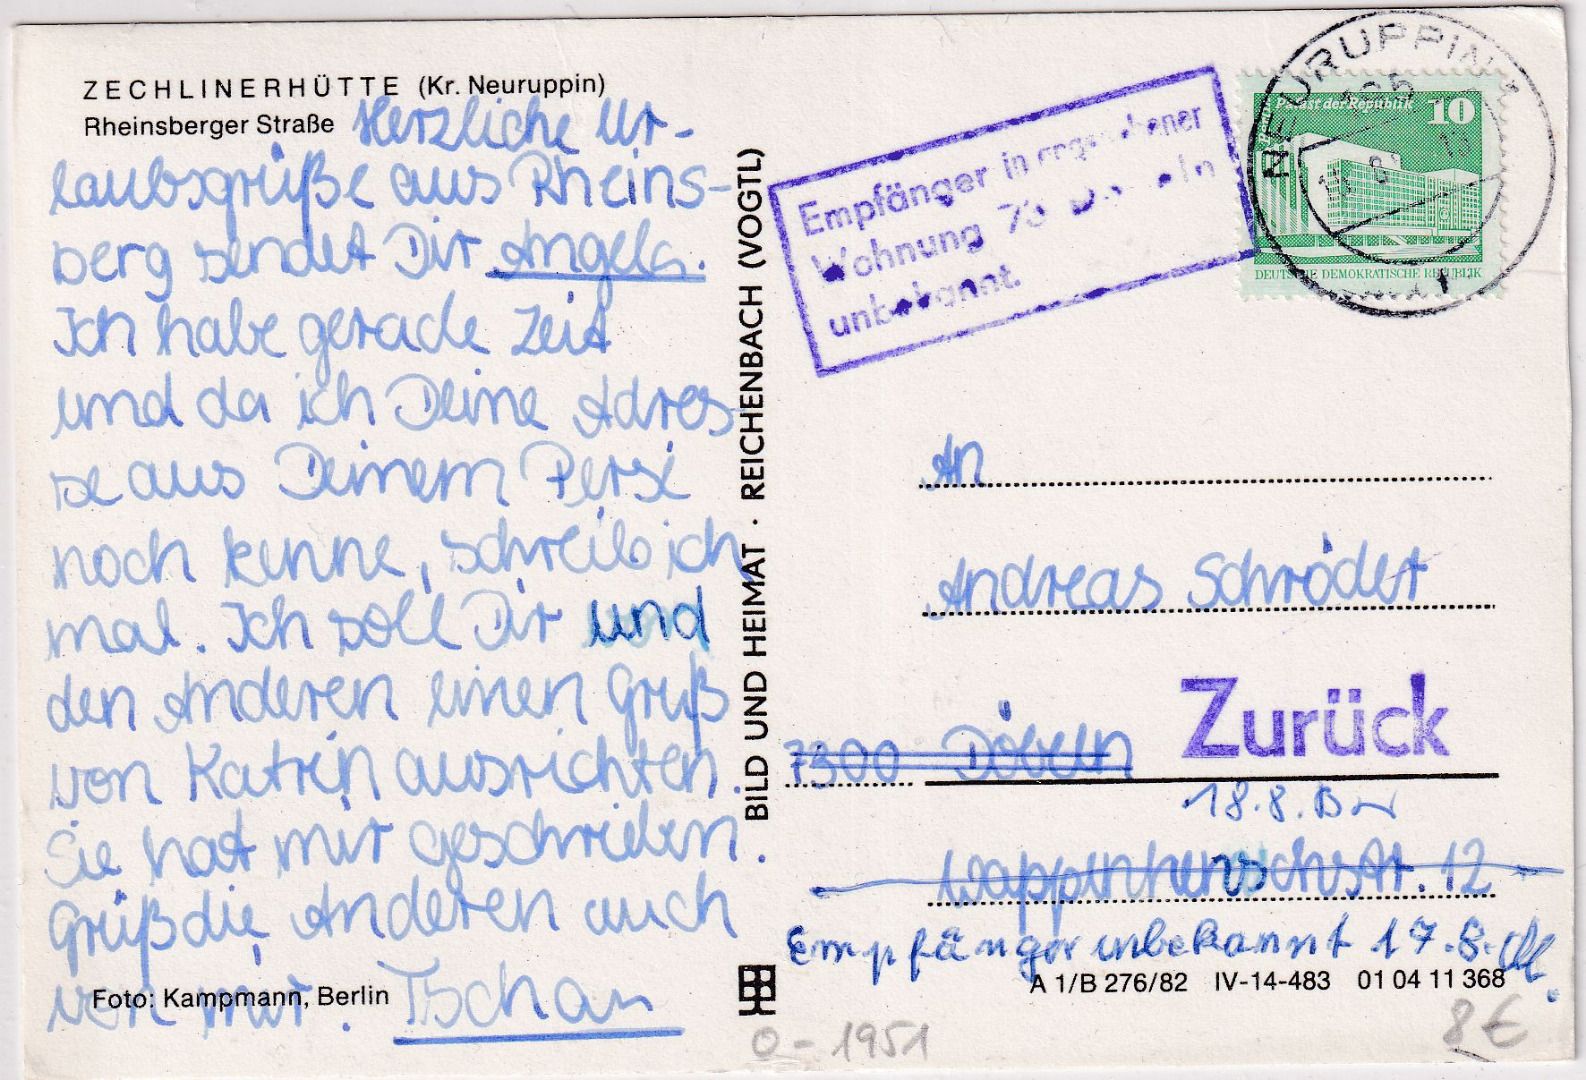 ZECHLINERHÜTTE (Kr. Neuruppin)
Rheinsberger Straße
Herzliche Ur-
laubsgrüße aus Rheins-
berg sendet Dir Angela.
Ich habe gerade Zeit
und da ich Deine Adres-
se aus Deinem Persi
noch kenne, schreib ich
mal. Ich soll Dir und
den Anderen einen Gruß
von Katrin ausrichten.
Sie hat mir geschrieben.
Grüß die Anderen auch
von mir. Tschau
Foto: Kampmann, Berlin
BILD UND HEIMAT · REICHENBACH (VOGTL)
Empfänger in angegebener
Wohnung 73 Döbeln
unbekannt.
NEURUPPIN 1
Palast der Republik 10
DEUTSCHE DEMOKRATISCHE REPUBLIK
An
Andreas Schröder
Zurück
7300 Döbeln
18.8.
12
Empfänger unbekannt 17.8.
A 1/B 276/82 IV-14-483 01 04 11 368
0-1951
8€